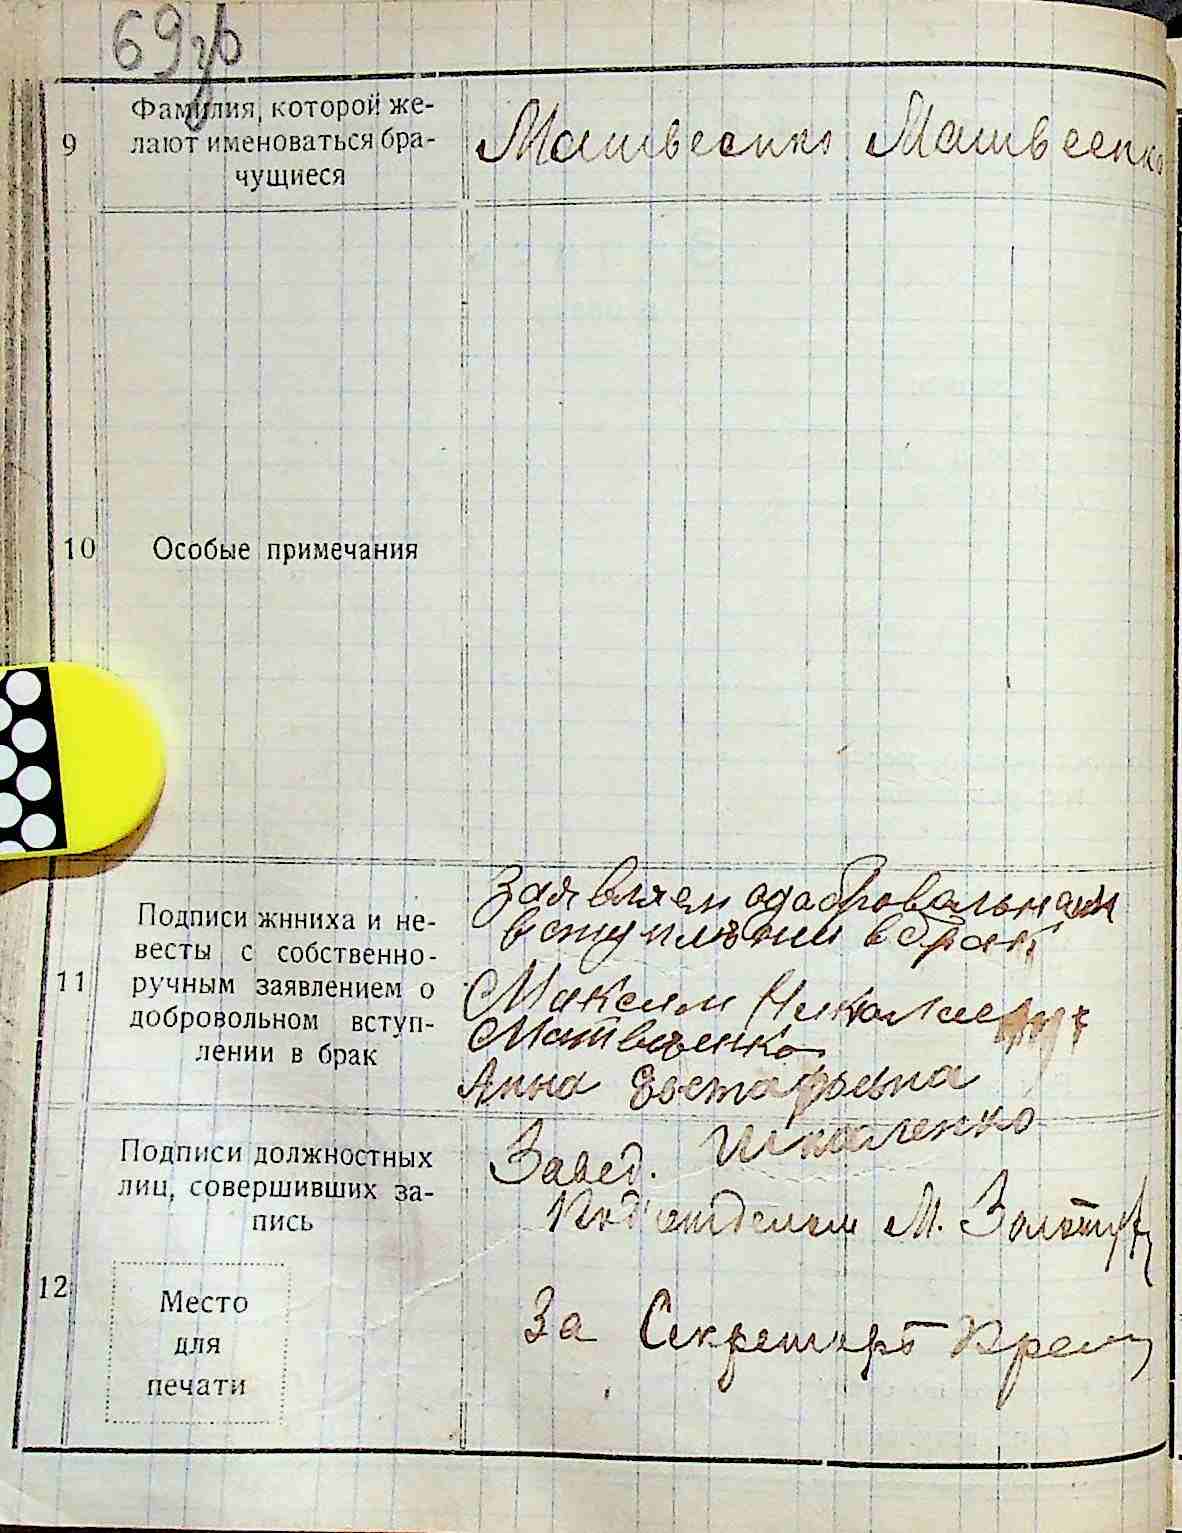 69
9
Фамилия, которой же-
лают именоваться бра-
чущиеся
Матвеенко Матвеенко
10
Особые примечания
11
Подписи жнниха и не-
весты с собственно-
ручным заявлением о
добровольном вступ-
лении в брак
Заявляем одобровольнам
вступлении вбрак
Максим Николаевич
Матвѣенко
Анна Евстафьевна
Шкаленко
12
Подписи должностных
лиц, совершивших за-
пись
Место
для
печати
Завед.
Под'отделом М.
За Секретарь